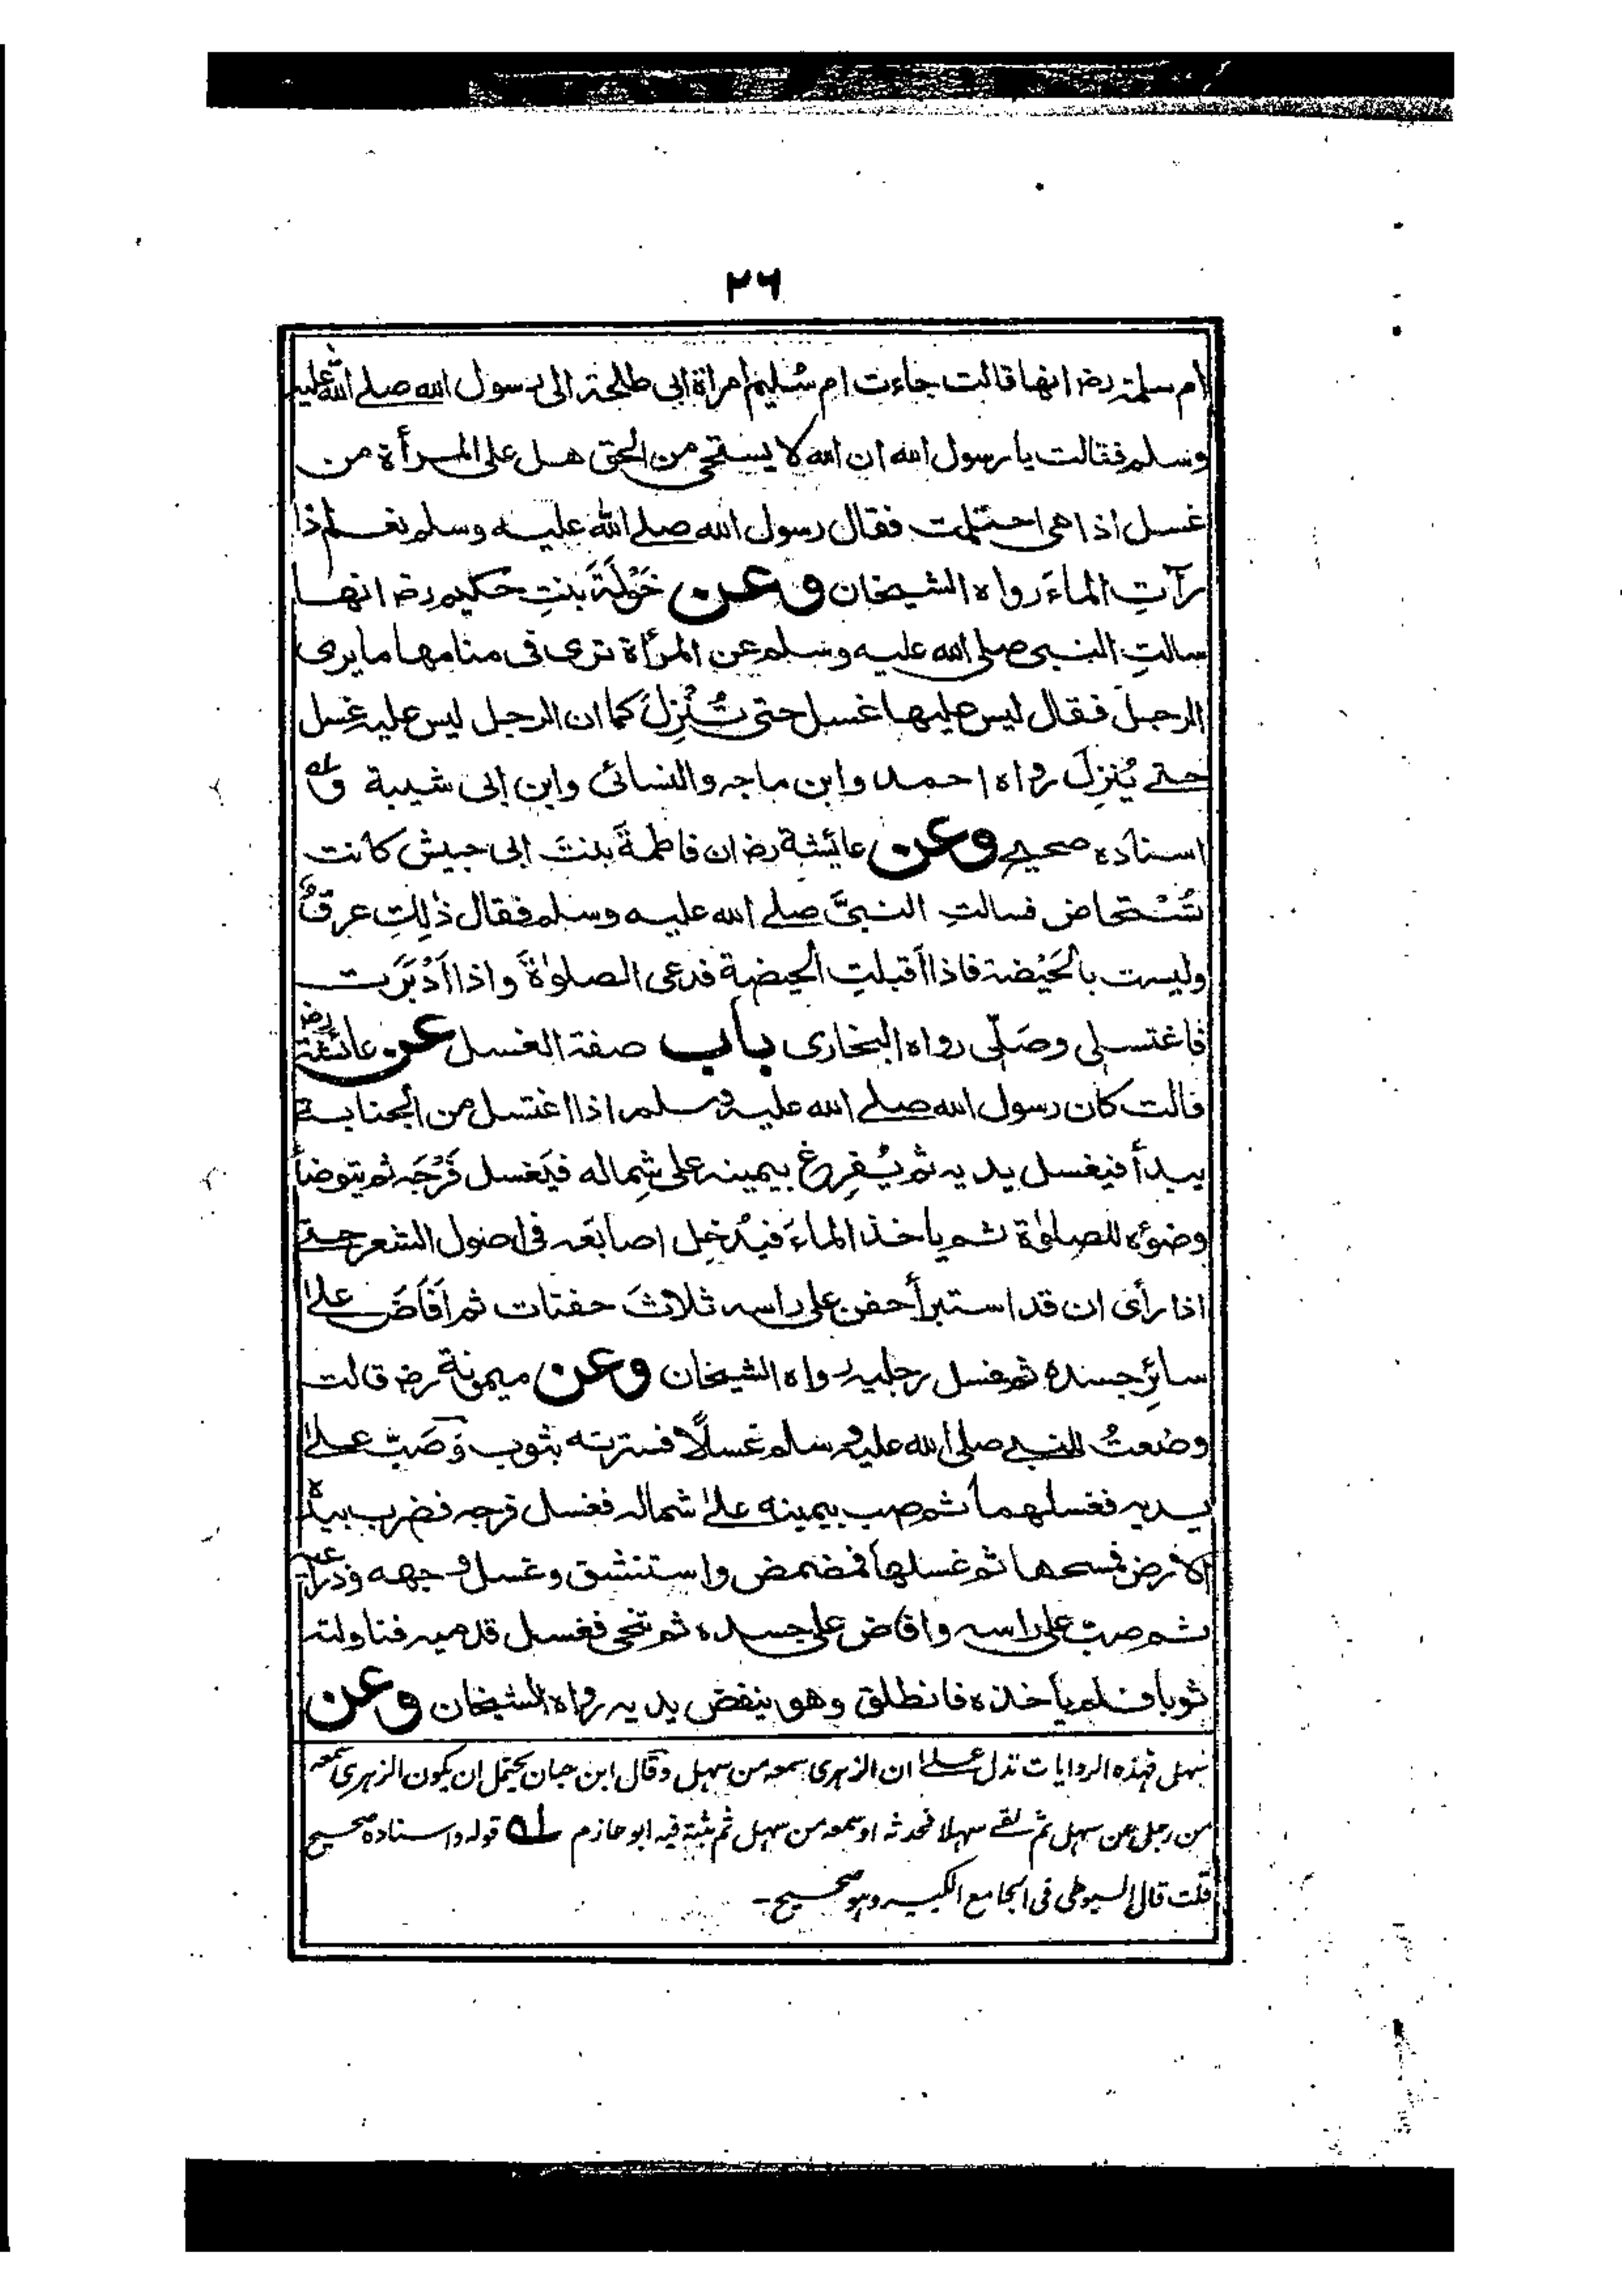 ٢٦
ام سلمة رضـ انها قالت جاءت ام سُليم امراة ابى طلحة الى رسول الله صلے الله عليه
وسلم فقالت يا رسول الله ان الله لا يستحى من الحق هل على المرأة من
غسل اذا هى احتلمت فقال رسول الله صلے الله عليه وسلم نعم اذا
رآتِ الماءَ رواه الشيخان وعن خَوْلَةَ بنتِ حكيم رضـ انها
سالتِ النبى صلى الله عليه وسلم عن المرأة ترى فى منامها ما يرى
الرجل فقال ليس عليها غسل حتى تُنْزِلَ كما ان الرجل ليس عليه غسل
حتے يُنزِلَ رواه احمد وابن ماجه والنسائى وابن ابى شيبة و لـه
اسناده صحيح وعن عائشة رضـ ان فاطمةَ بنتَ ابى حبيش كانت
تُسْتحاض فسالتِ النبىَّ صلے الله عليه وسلم فقال ذٰلِكِ عرقٌ
وليست بالحَيْضة فاذا اَقبلتِ الحيضة فدعى الصلوٰةَ واذا اَدْبَرَت
فاغتسلى وصَلّى رواه البخارى باب صفة الغسل عن عائشة رضـ
قالت كان رسول الله صلے الله عليه وسلم اذا اغتسل من الجنابة
يبدأ فيغسل يديه ثم يُفرِغ بيمينه على شِماله فيَغسل فَرْجَه ثم يتوضأ
وضوءه للصلوٰة ثم ياخذ الماءَ فيُدخِل اصابعَه فى اصول الشعر حتے
اذا رأى ان قد استبرأ حفن على راسه ثلاثَ حفنات ثم اَفَاضَ علىٰ
سائرِ جسده ثم غسل رجليه رواه الشيخان وعن ميمونة رضـ قالت
وضعتُ للنبے صلى الله عليه وسلم غسلًا فسترته بثوب وَصَبّ علىٰ
يديه فغسلهما ثم صب بيمينه علىٰ شماله فغسل فرجه فضرب بيده
الارض فمسحها ثم غسلها فمضمض واستنشق وغسل وجهه وذراعيه
ثم صبّ على راسه وافاض على جسده ثم تنحى فغسل قدميه فناولته
ثوبا فلم ياخذه فانطلق وهو ينفض يديه رواه الشيخان وعن
سهل فهذه الروايات تدل علىٰ ان الزهرى سمعه من سهل وقال ابن حبان يحتمل ان يكون الزهرى سمعه
من رجل عن سهل ثم لقے سهلا فحدثه او سمعه من سهل ثم ثبته فيه ابو حازم لـه قوله واسناده صحيح
قلت قال السيوطى فى الجامع الكبير وهو صحيح ـ